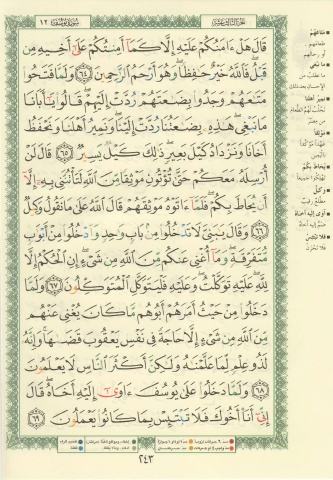 الجزء الثالث عشر
سورة يوسف ١٢
قَالَ هَلْ ءَامَنُكُمْ عَلَيْهِ إِلَّا كَمَآ أَمِنتُكُمْ عَلَىٰٓ أَخِيهِ مِن
قَبْلُ فَٱللَّهُ خَيْرٌ حَٰفِظًا وَهُوَ أَرْحَمُ ٱلرَّٰحِمِينَ ٦٤ وَلَمَّا فَتَحُوا۟
مَتَٰعَهُمْ وَجَدُوا۟ بِضَٰعَتَهُمْ رُدَّتْ إِلَيْهِمْ قَالُوا۟ يَٰٓأَبَانَا
مَا نَبْغِى هَٰذِهِۦ بِضَٰعَتُنَا رُدَّتْ إِلَيْنَا وَنَمِيرُ أَهْلَنَا وَنَحْفَظُ
أَخَانَا وَنَزْدَادُ كَيْلَ بَعِيرٍ ذَٰلِكَ كَيْلٌ يَسِيرٌ ٦٥ قَالَ لَنْ
أُرْسِلَهُۥ مَعَكُمْ حَتَّىٰ تُؤْتُونِ مَوْثِقًا مِّنَ ٱللَّهِ لَتَأْتُنَّنِى بِهِۦٓ إِلَّآ
أَن يُحَاطَ بِكُمْ فَلَمَّآ ءَاتَوْهُ مَوْثِقَهُمْ قَالَ ٱللَّهُ عَلَىٰ مَا نَقُولُ وَكِيلٌ
٦٦ وَقَالَ يَٰبَنِىَّ لَا تَدْخُلُوا۟ مِنۢ بَابٍ وَٰحِدٍ وَٱدْخُلُوا۟ مِنْ أَبْوَٰبٍ
مُّتَفَرِّقَةٍ وَمَآ أُغْنِى عَنكُم مِّنَ ٱللَّهِ مِن شَىْءٍ إِنِ ٱلْحُكْمُ إِلَّا
لِلَّهِ عَلَيْهِ تَوَكَّلْتُ وَعَلَيْهِ فَلْيَتَوَكَّلِ ٱلْمُتَوَكِّلُونَ ٦٧ وَلَمَّا
دَخَلُوا۟ مِنْ حَيْثُ أَمَرَهُمْ أَبُوهُم مَّا كَانَ يُغْنِى عَنْهُم
مِّنَ ٱللَّهِ مِن شَىْءٍ إِلَّا حَاجَةً فِى نَفْسِ يَعْقُوبَ قَضَىٰهَا وَإِنَّهُۥ
لَذُو عِلْمٍ لِّمَا عَلَّمْنَٰهُ وَلَٰكِنَّ أَكْثَرَ ٱلنَّاسِ لَا يَعْلَمُونَ
٦٨ وَلَمَّا دَخَلُوا۟ عَلَىٰ يُوسُفَ ءَاوَىٰٓ إِلَيْهِ أَخَاهُ قَالَ
إِنِّىٓ أَنَا۠ أَخُوكَ فَلَا تَبْتَئِسْ بِمَا كَانُوا۟ يَعْمَلُونَ ٦٩
٢٤٣